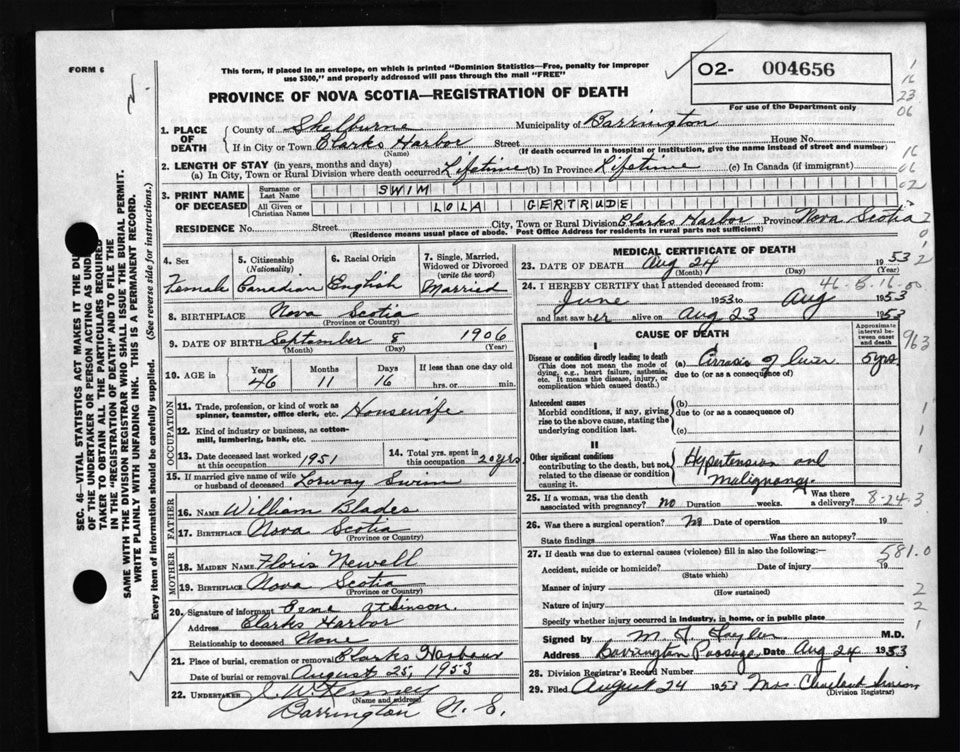 FORM 6
This form, if placed in an envelope, on which is printed "Dominion Statistics—Free, penalty for improper
use $300," and properly addressed will pass through the mail "FREE"
O2- 004656
For use of the Department only
PROVINCE OF NOVA SCOTIA—REGISTRATION OF DEATH
1. PLACE OF DEATH
County of Shelburne Municipality of Barrington
If in City or Town Clarks Harbor Street House No.
(Name) (If death occurred in a hospital or institution, give the name instead of street and number)
2. LENGTH OF STAY (in years, months and days)
(a) In City, Town or Rural Division where death occurred Lifetime (b) In Province Lifetime (c) In Canada (if immigrant)
3. PRINT NAME OF DECEASED
Surname or Last Name SWIM
All Given or Christian Names LOLA GERTRUDE
RESIDENCE No. Street City, Town or Rural Division Clarks Harbor Province Nova Scotia
(Residence means usual place of abode. Post Office Address for residents in rural parts not sufficient)
4. Sex Female
5. Citizenship (Nationality) Canadian
6. Racial Origin English
7. Single, Married, Widowed or Divorced (write the word) Married
8. BIRTHPLACE Nova Scotia
(Province or Country)
9. DATE OF BIRTH September 8 1906
(Month) (Day) (Year)
10. AGE in Years Months Days If less than one day old
46 11 16 hrs. or min.
OCCUPATION
11. Trade, profession, or kind of work as spinner, teamster, office clerk, etc. Housewife
12. Kind of industry or business, as cotton-mill, lumbering, bank, etc.
13. Date deceased last worked at this occupation 1951
14. Total yrs. spent in this occupation 20 yrs
15. If married give name of wife or husband of deceased Swim
FATHER
16. NAME William Blades
17. BIRTHPLACE Nova Scotia
(Province or Country)
MOTHER
18. MAIDEN NAME Floris Newell
19. BIRTHPLACE Nova Scotia
(Province or Country)
20. Signature of informant Erma Atkinson.
Address Clarks Harbor
Relationship to deceased None
21. Place of burial, cremation or removal Clarks Harbour
Date of burial or removal August 25, 1953
22. UNDERTAKER J. W. Kenney
(Name and address)
Barrington N. S.
MEDICAL CERTIFICATE OF DEATH
23. DATE OF DEATH Aug 24 1953
(Month) (Day) (Year)
46-5-16-00
24. I HEREBY CERTIFY that I attended deceased from:
June 1953 to Aug 1953
and last saw her alive on Aug 23 1953
CAUSE OF DEATH
Approximate interval between onset and death
I
Disease or condition directly leading to death
(This does not mean the mode of dying, e.g., heart failure, asthenia, etc. It means the disease, injury, or complication which caused death.)
(a) Cirrosis of liver 5 yrs
due to (or as a consequence of)
Antecedent causes
Morbid conditions, if any, giving rise to the above cause, stating the underlying condition last.
(b)
due to (or as a consequence of)
(c)
II
Other significant conditions
contributing to the death, but not related to the disease or condition causing it.
Hypertension and
malignancy
25. If a woman, was the death associated with pregnancy? No Duration weeks. Was there a delivery?
8-24-3
26. Was there a surgical operation? No Date of operation 19
State findings Was there an autopsy?
27. If death was due to external causes (violence) fill in also the following:—
581.0
Accident, suicide or homicide? Date of injury 19
(State which)
Manner of injury
(How sustained)
Nature of injury
Specify whether injury occurred in industry, in home, or in public place
Signed by M.D.
Address Barrington Passage Date Aug 24 1953
28. Division Registrar's Record Number
29. Filed August 24 1953 Mrs. Cleveland
(Division Registrar)
SEC. 46—VITAL STATISTICS ACT MAKES IT THE DU
OF THE UNDERTAKER OR PERSON ACTING AS UNDER
TAKER TO OBTAIN ALL THE PARTICULARS REQUIRED
IN THE "REGISTRATION OF DEATH" AND TO FILE THE
SAME WITH THE DIVISION REGISTRAR WHO SHALL ISSUE THE BURIAL PERMIT.
WRITE PLAINLY WITH UNFADING INK. THIS IS A PERMANENT RECORD.
Every item of information should be carefully supplied. (See reverse side for instructions.)
1
16
23
06
16
06
02
963
1
1
1
2
2